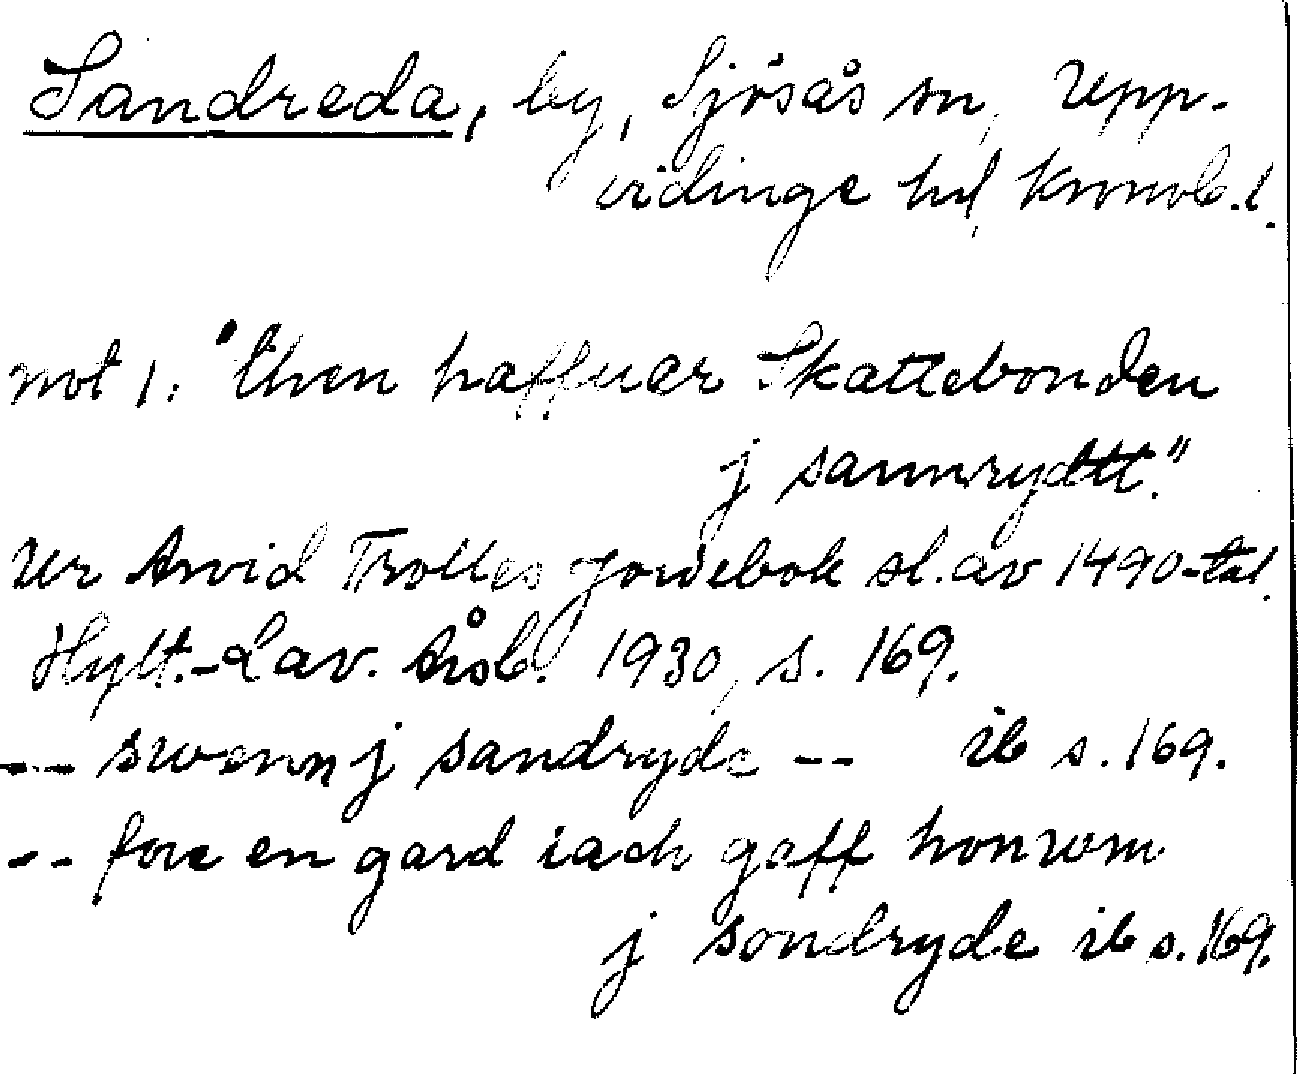 Sandreda, by, Sjösås sn, Upp-
vidinge hd, Kronob. l.
not 1. "then haffuer Skattebonden
j sannrydtt."
Ur Arvid Trolles jordebok sl. av 1490-tal.
Hylt.-Cav. Årsb. 1930, s. 169.
--- swenn j sandryde -- ib s. 169.
-- fore en gard iach gaff honwm
j sondryde ib s. 169.